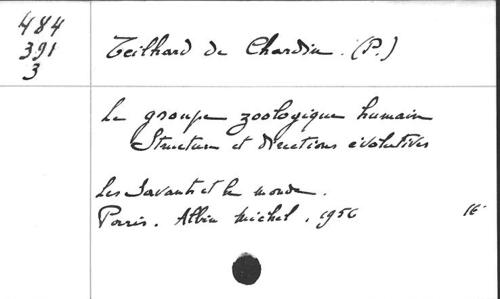 484
391
3
Teilhard de Chardin. (P.)
Le groupe zoologique humain
Structure et directions évolutives
Les Savants et le monde.
Paris. Albin Michel, 1956 16°